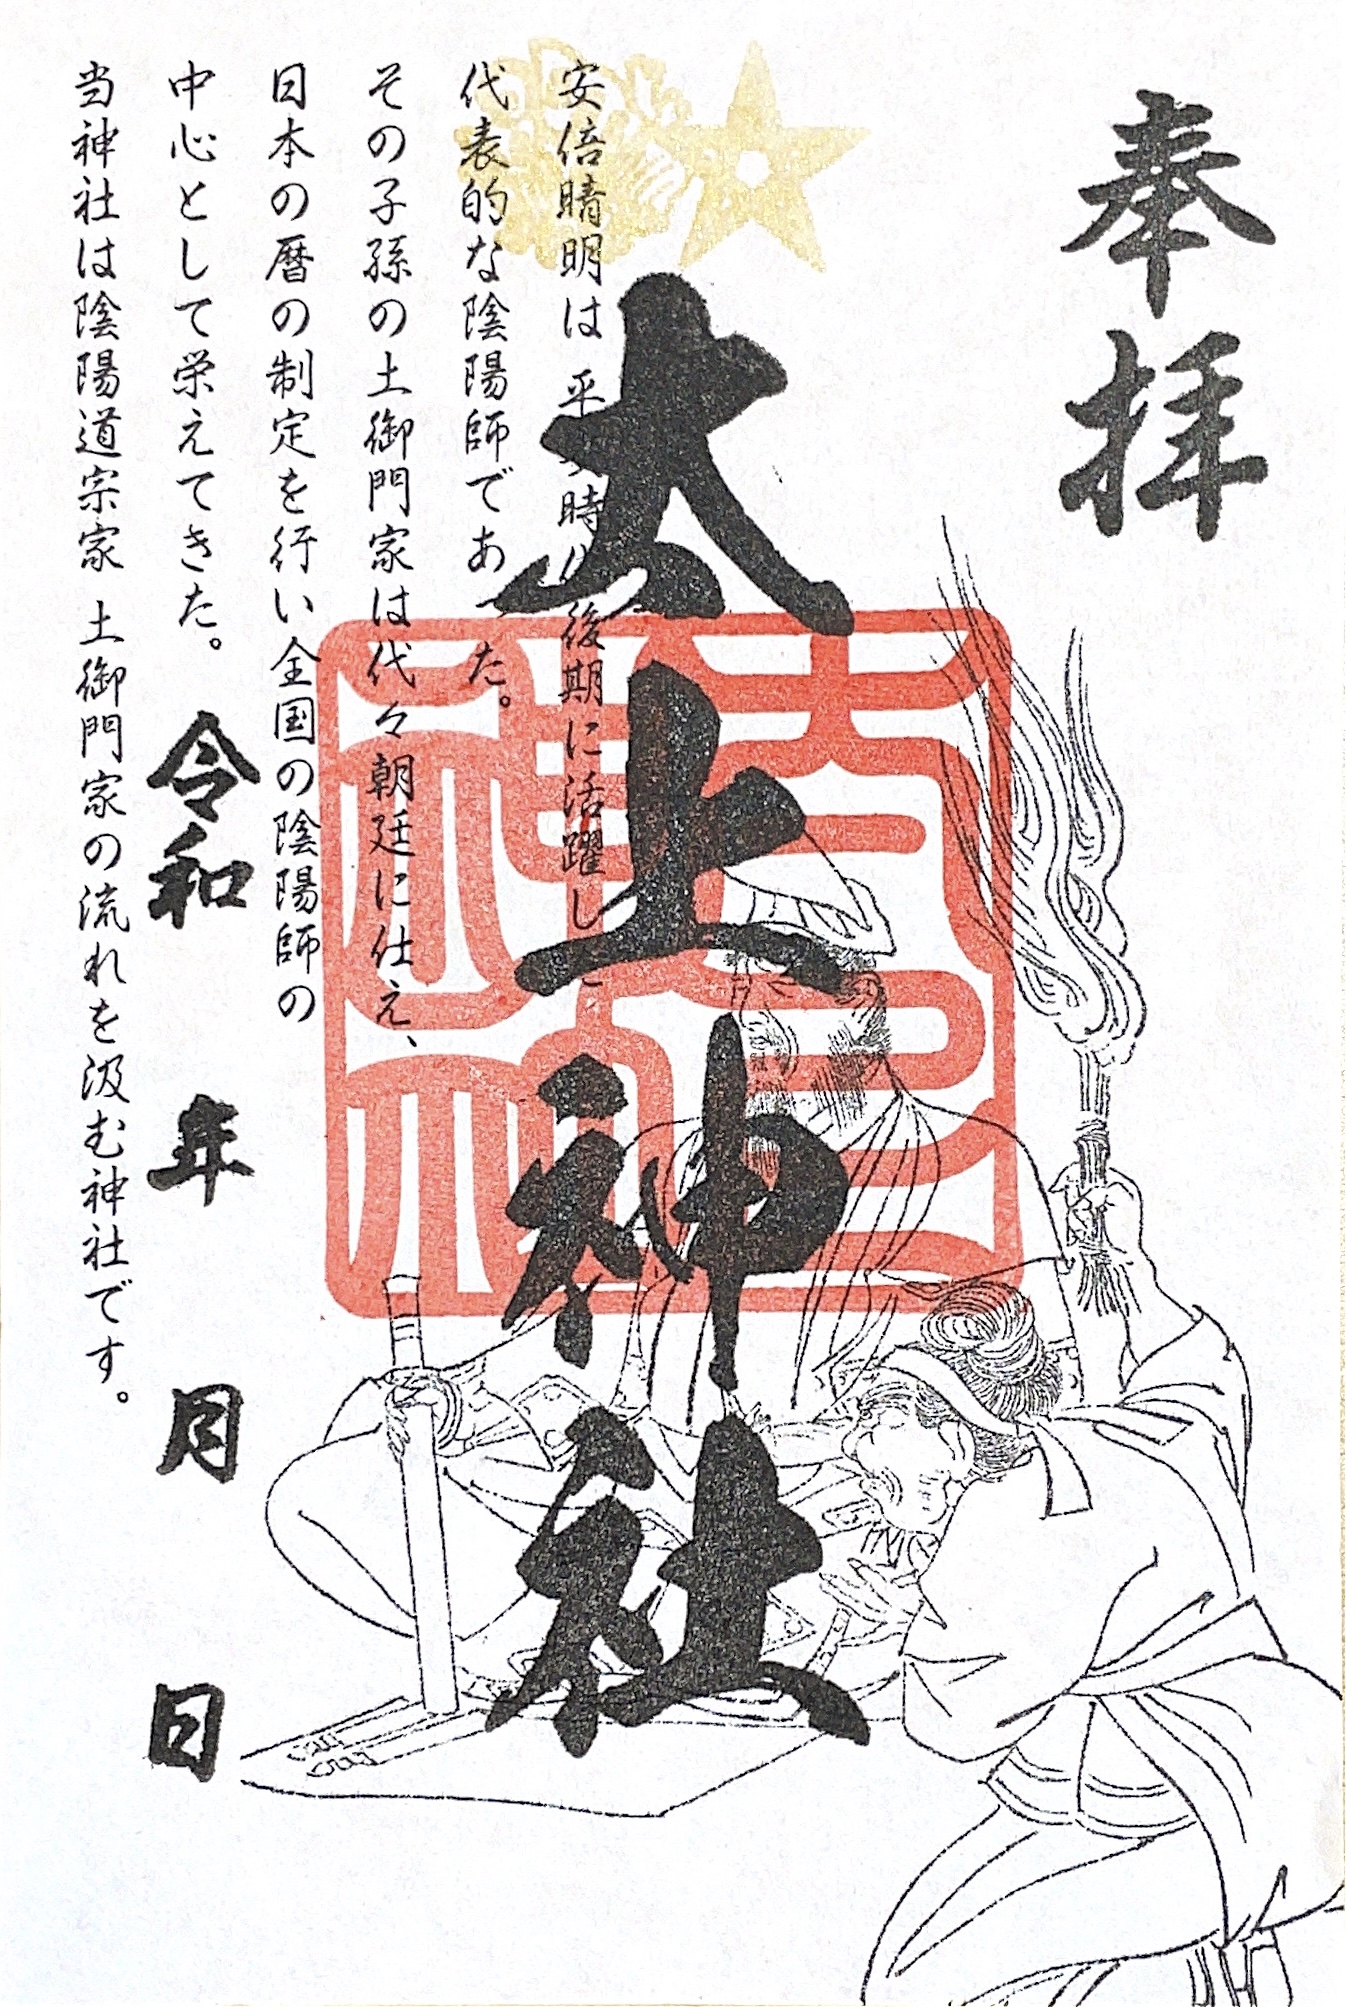 奉拝
太上神社
安倍晴明は 平安時代後期に活躍した
代表的な陰陽師であった。
その子孫の土御門家は代々朝廷に仕え、
日本の暦の制定を行い全国の陰陽師の
中心として栄えてきた。
令和 年 月 日
当神社は陰陽道宗家 土御門家の流れを汲む神社です。
太上神社